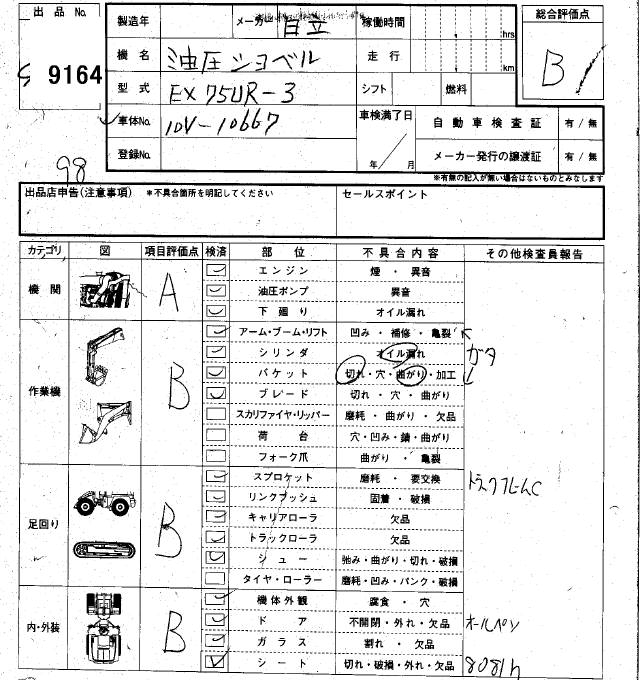 出品No. 製造年 メーカー 日立 稼働時間 hrs 総合評価点
9164 機名 油圧ショベル 走行 km B
型式 EX75UR-3 シフト 燃料
車体No. 10V-10667 車検満了日 年/月 自動車検査証 有/無
98 登録No. メーカー発行の譲渡証 有/無
*有無の記入が無い場合はないものとみなします
出品店申告(注意事項) *不具合箇所を明記してください セールスポイント
カテゴリ 図 項目評価点 検済 部位 不具合内容 その他検査員報告
機関 A エンジン 煙・異音
油圧ポンプ 異音
下廻り オイル漏れ
作業機 B アーム・ブーム・リフト 凹み・補修・亀裂
シリンダ オイル漏れ ガタ
バケット 切れ・穴・曲がり・加工
ブレード 切れ・穴・曲がり
スカリファイヤ・リッパー 磨耗・曲がり・欠品
荷台 穴・凹み・錆・曲がり
フォーク爪 曲がり・亀裂
足回り B スプロケット 磨耗・要交換
リンクブッシュ 固着・破損
キャリアローラ 欠品
トラックローラ 欠品
シュー 弛み・曲がり・切れ・破損
タイヤ・ローラー 磨耗・凹み・パンク・破損
内・外装 B 機体外観 腐食・穴
ドア 不開閉・外れ・欠品 オールペン
ガラス 割れ・欠品
シート 切れ・破損・外れ・欠品 8081h